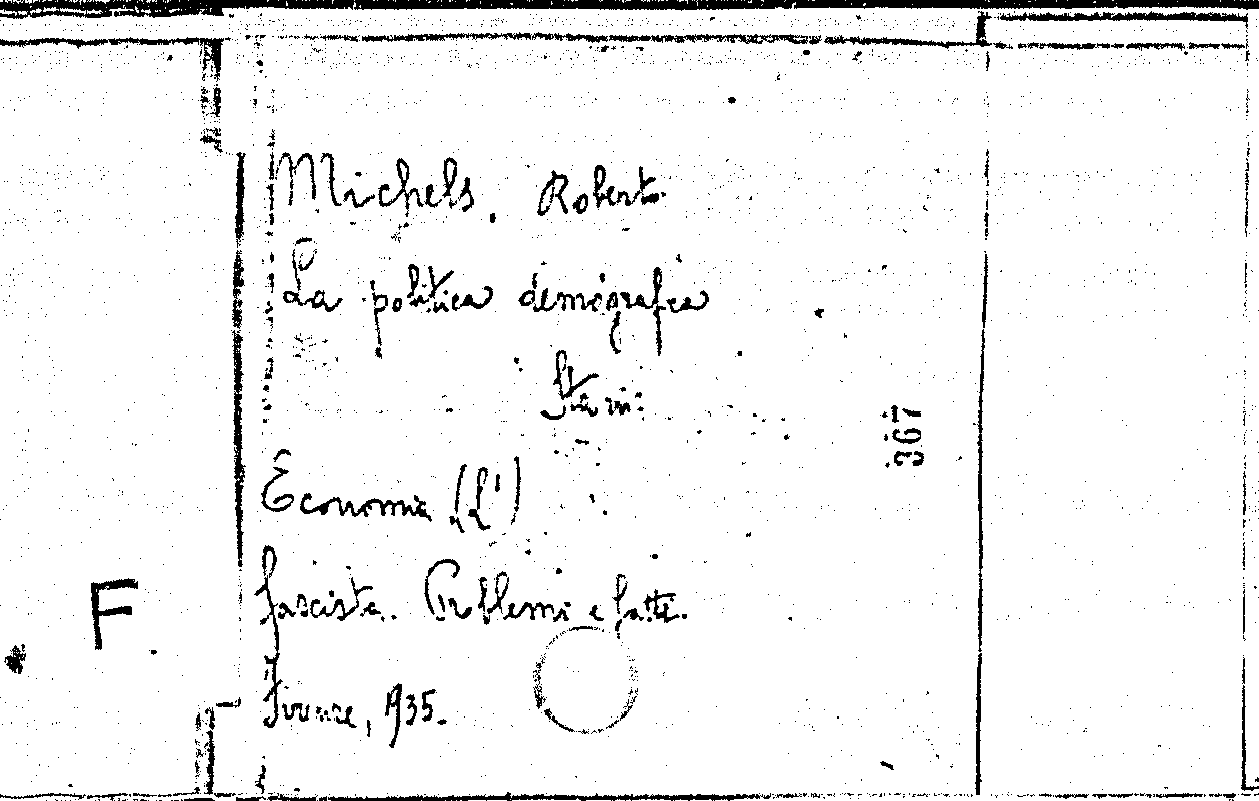 Michels, Roberto
La politica demografica
Sta in:
Economia (L')
fascista. Problemi e fatti.
Firenze, 1935.
367
F